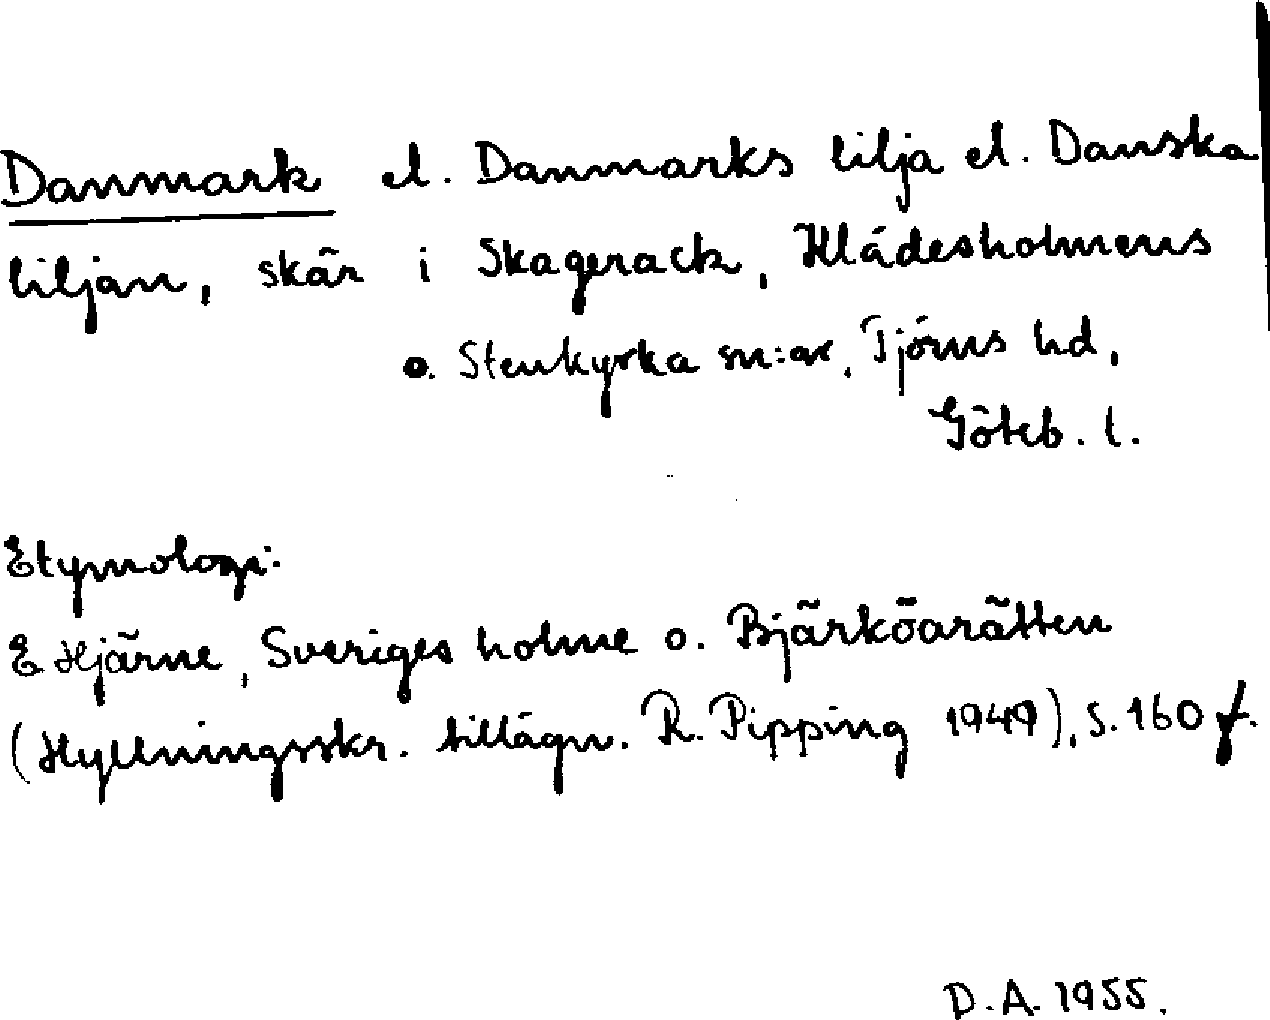 Danmark el. Danmarks lilja el. Danska
liljan, skär i Skagerack, Klädesholmens
o. Stenkyrka sn:ar, Tjörns hd,
Göteb. l.
Etymologi:
E Hjärne, Sveriges holme o. Bjärköarätten
(Hyllningsskr. tillägn. R. Pipping 1949), S. 160 f.
D.A. 1955.